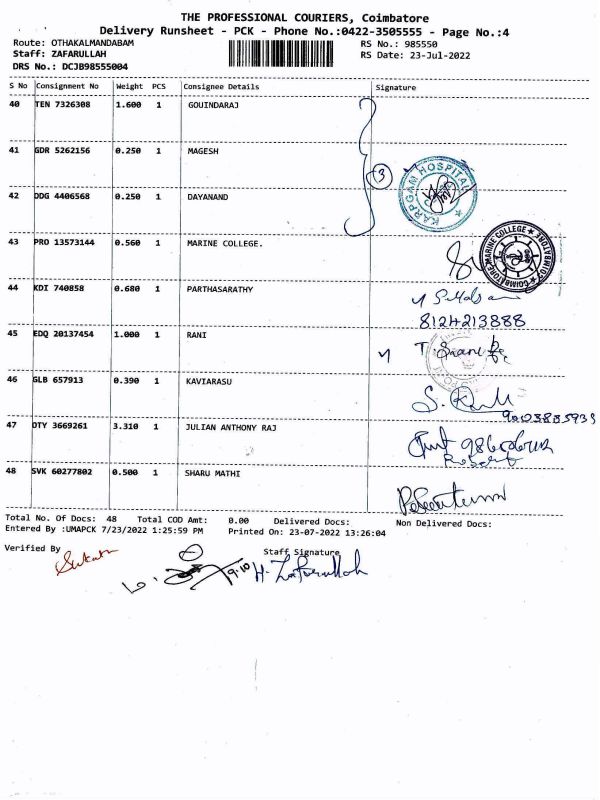 THE PROFESSIONAL COURIERS, Coimbatore
Delivery Runsheet - PCK - Phone No.:0422-3505555 - Page No.:4
Route: OTHAKALMANDABAM RS No.: 985550
Staff: ZAFARULLAH RS Date: 23-Jul-2022
DRS No.: DCJB98555004
S No Consignment No Weight PCS Consignee Details Signature
40 TEN 7326308 1.600 1 GOUINDARAJ
41 GDR 5262156 0.250 1 MAGESH
3
KARPGAM HOSPITAL
42 DDG 4406568 0.250 1 DAYANAND
43 PRO 13573144 0.560 1 MARINE COLLEGE.
COIMBATORE MARINE COLLEGE * COIMBATORE
44 KDI 740858 0.680 1 PARTHASARATHY
8124213888
45 EDQ 20137454 1.000 1 RANI
46 GLB 657913 0.390 1 KAVIARASU
47 DTY 3669261 3.310 1 JULIAN ANTHONY RAJ
48 SVK 60277802 0.500 1 SHARU MATHI
Total No. Of Docs: 48 Total COD Amt: 0.00 Delivered Docs: Non Delivered Docs:
Entered By :UMAPCK 7/23/2022 1:25:59 PM Printed On: 23-07-2022 13:26:04
Verified By Staff Signature
9.10 H. Zafarullah